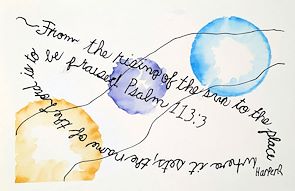 ~From the rising of the sun to the place
where it sets, the name of the Lord is to
be praised Psalm 113:3